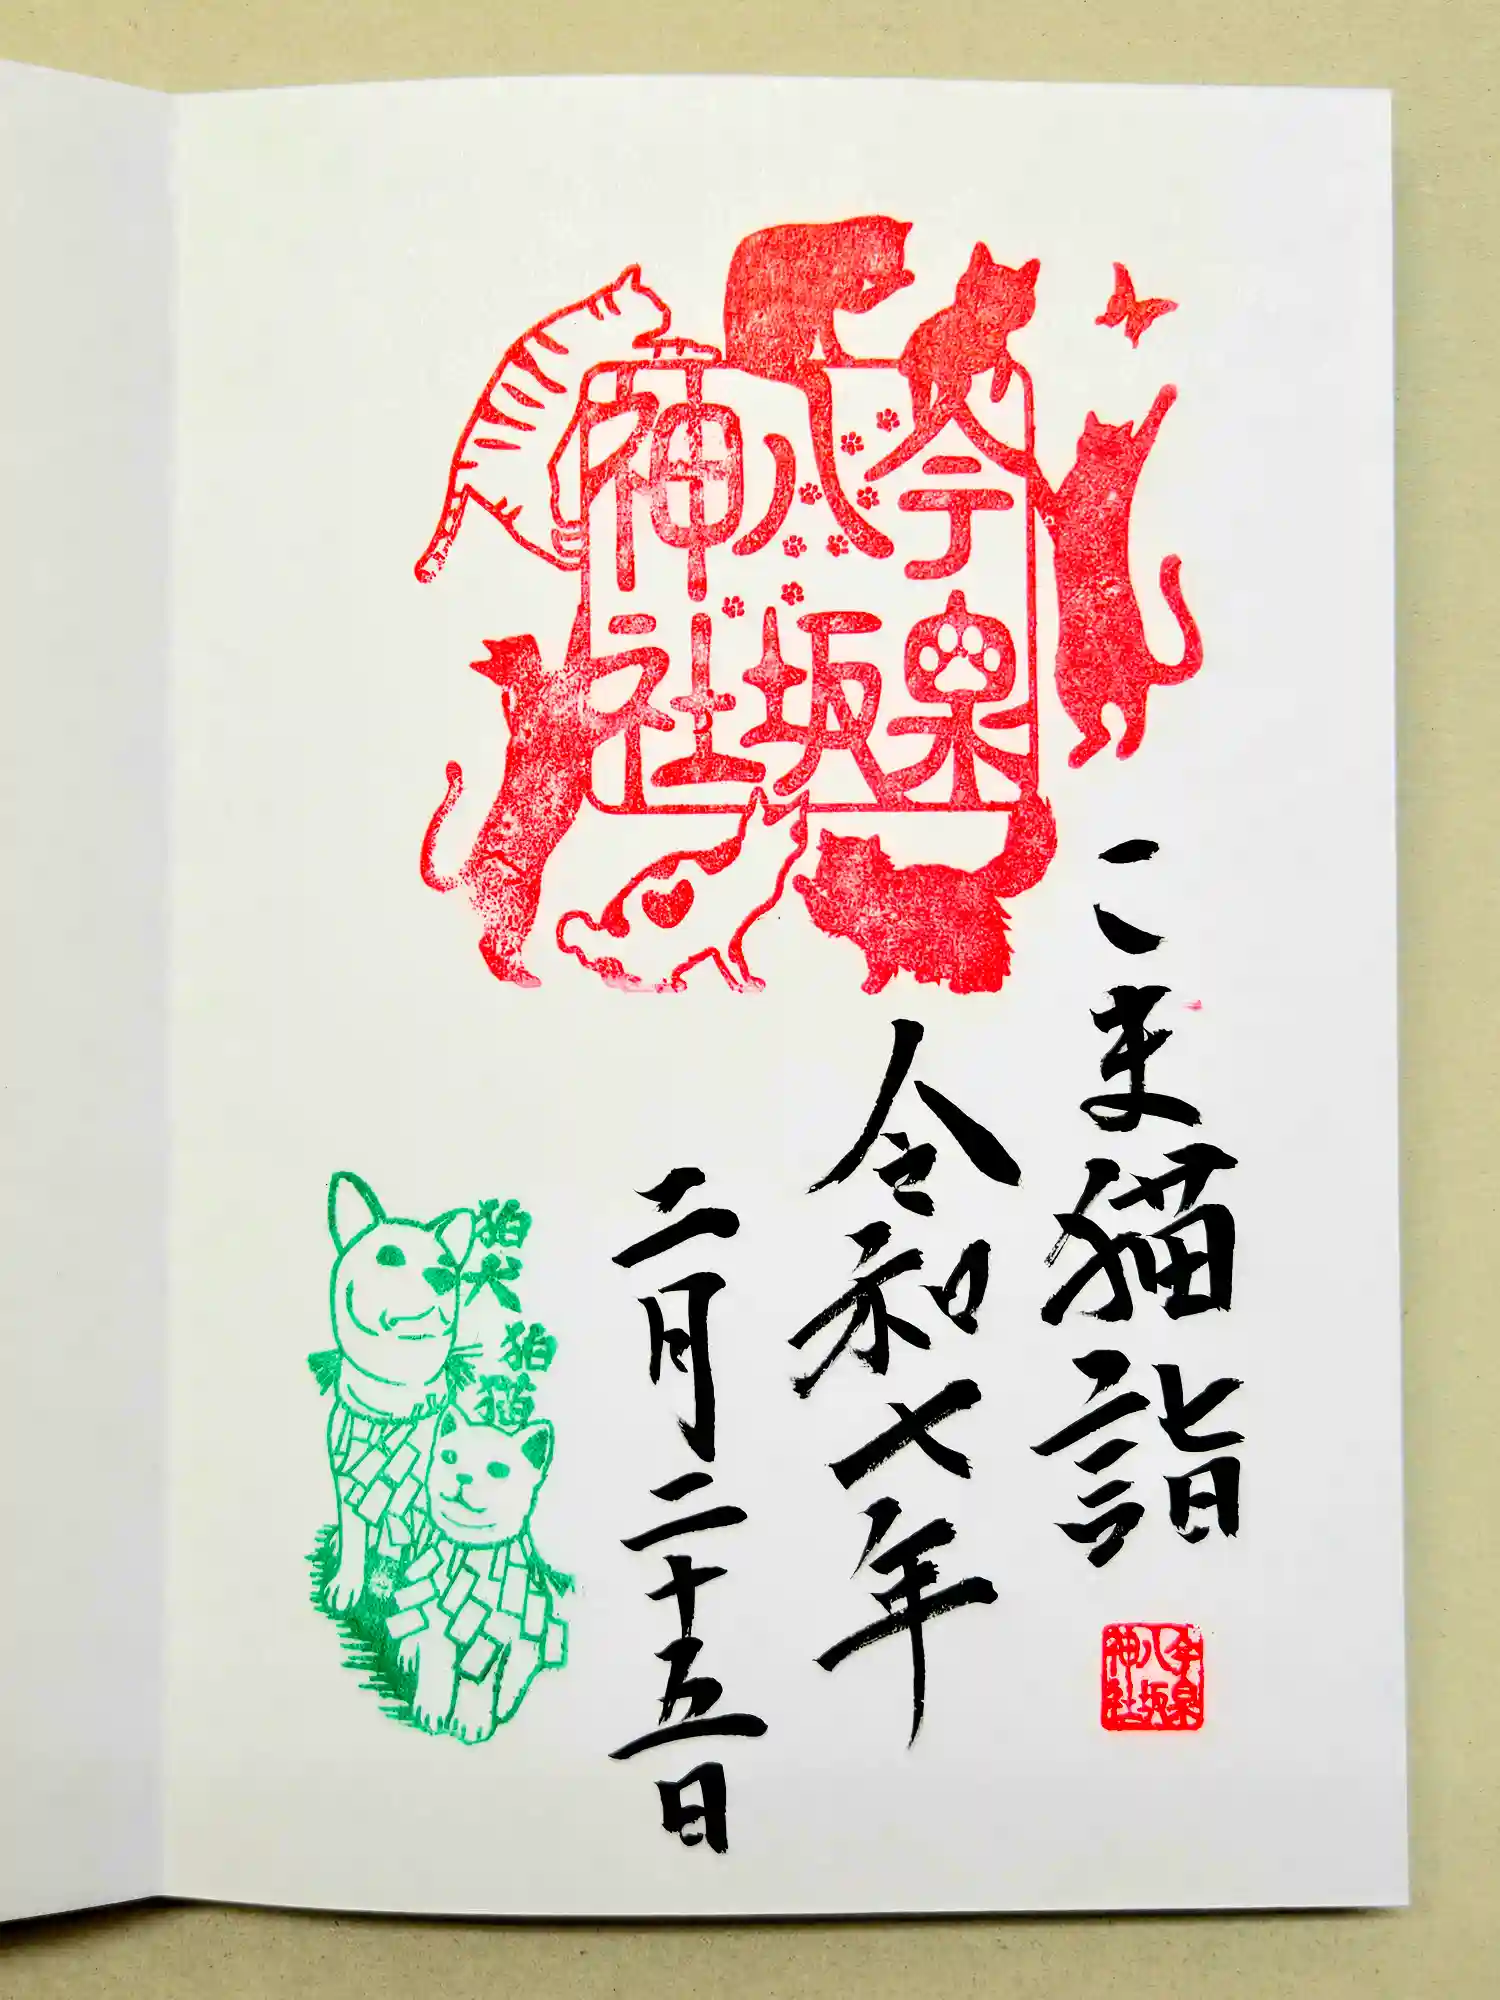 今泉
八坂
神社
こま猫詣
令和七年
二月二十五日
狛犬
狛猫
今泉
八坂
神社